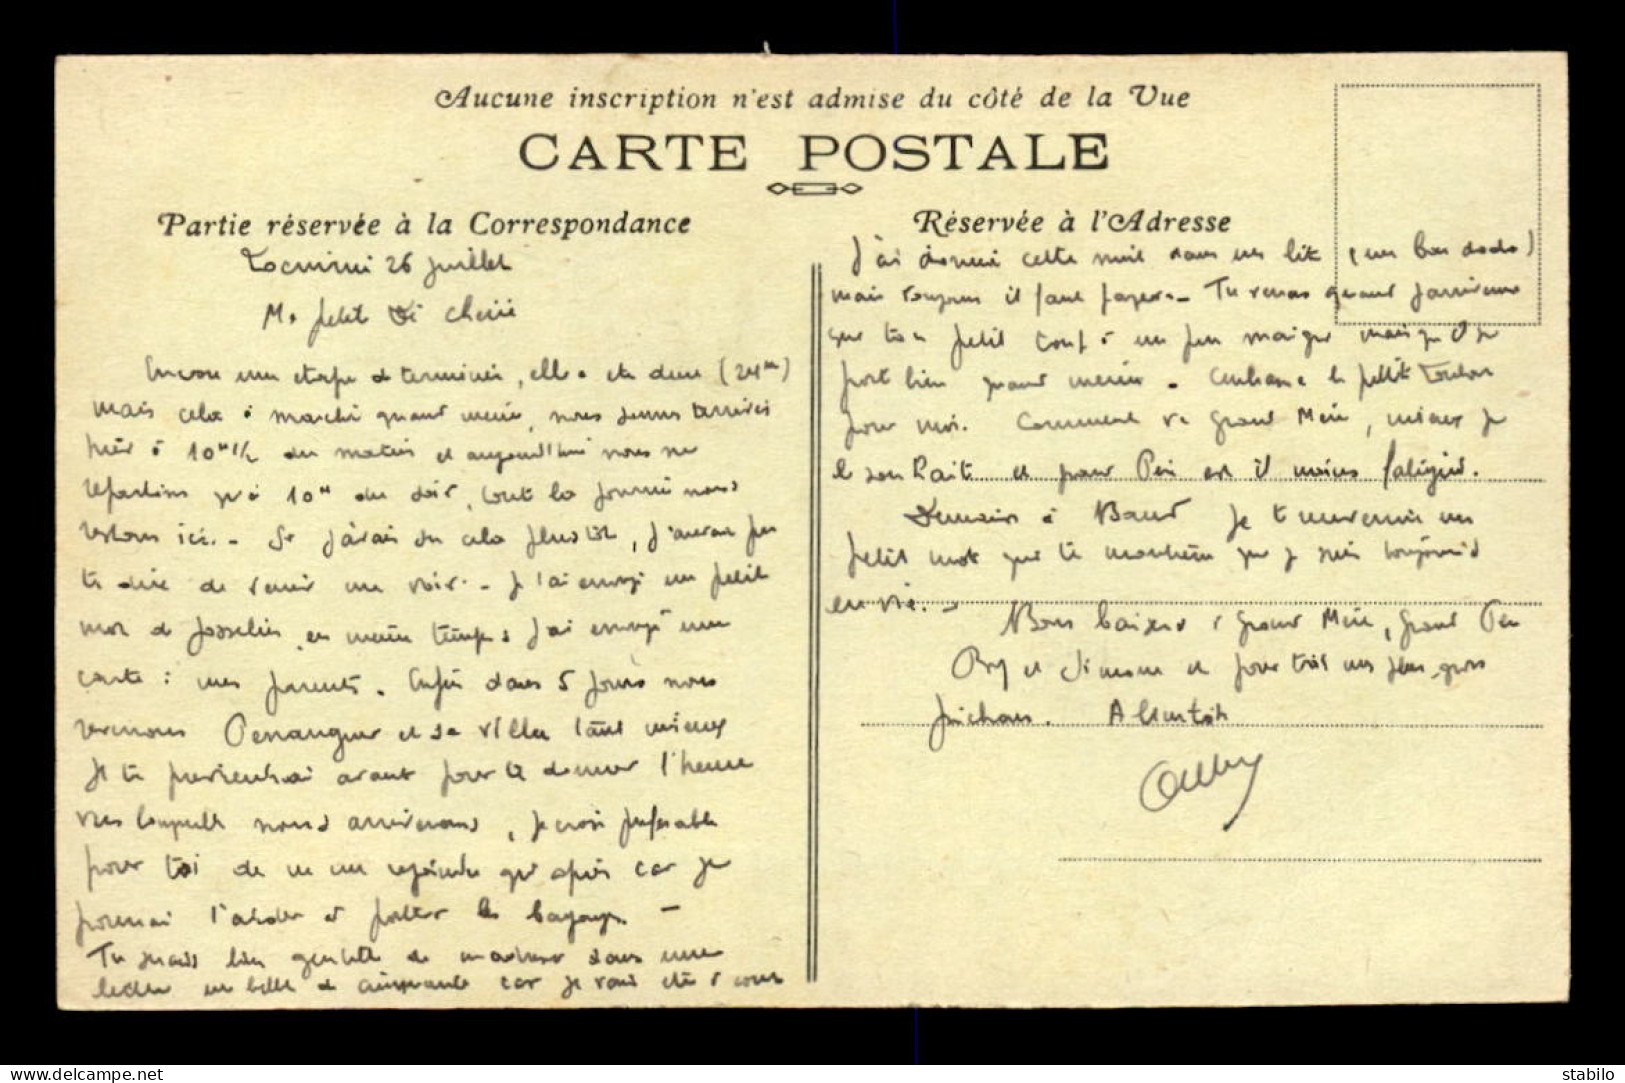 Aucune inscription n'est admise du côté de la Vue
CARTE POSTALE
Partie réservée à la Correspondance
Locminé 26 Juillet
Ma petite chérie
Encore une étape de terminée, elle a été dure (24 km)
mais cela a marché quand même, nous sommes arrivés
hier à 10h 1/2 du matin et aujourd'hui nous ne
repartons qu'à 10h du soir, toute la journée nous
restons ici. - Si j'avais su cela plus tôt, j'aurais pu
te dire de venir me voir. - Je t'ai envoyé un petit
mot de Josselin, en même temps j'ai envoyé une
carte à mes parents. Enfin dans 5 jours nous
verrons et sa villa tant mieux
Je te préviendrai avant pour te donner l'heure
vers laquelle nous arriverons, je crois préférable
pour toi de ne me rejoindre qu'après car je
pourrai t'aider à porter les bagages. -
Tu serais bien gentille de dans une
lettre un billet de car je vais être à court
Réservée à l'Adresse
J'ai dormi cette nuit dans un lit (un bon dodo)
mais toujours il faut payer. - Tu verras quand j'arriverai
que ton petit est un peu maigre mais qu'il se
porte bien quand même. Embrasse le petit
pour moi. Comment va Grand Mère, mieux je
le souhaite et grand Père est il moins fatigué.
Demain à Baud je t'enverrai un
petit mot qui te montrera que je suis toujours
en vie. -
Bons baisers à Grand Mère, Grand Père
et Simone et pour toi mes plus gros
. A bientôt
www.delcampe.net
stabilo